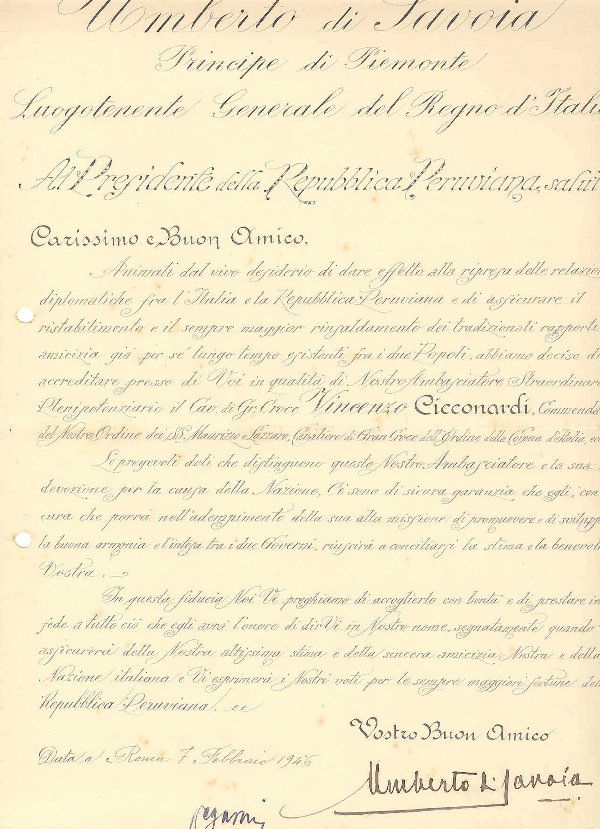 Umberto di Savoia
Principe di Piemonte
Luogotenente Generale del Regno d'Itali
Al Presidente della Repubblica Peruviana, salut
Carissimo e Buon Amico,
Animati dal vivo desiderio di dare effetto alla ripresa delle relazion
diplomatiche fra l'Italia e la Repubblica Peruviana e di assicurare il
ristabilimento e il sempre maggior rinsaldamento dei tradizionali rapporti
amicizia già per sè lungo tempo esistenti fra i due Popoli, abbiamo deciso di
accreditare presso di Voi in qualità di Nostro Ambasciatore Straordinario
Plenipotenziario il Cav. di Gr. Croce Vincenzo Cicconardi, Commenda
del Nostro Ordine dei SS. Maurizio e Lazzaro, Cavaliere di Gran Croce dell'Ordine della Corona d'Italia, ecc
Le pregevoli doti che distinguono questo Nostro Ambasciatore e la sua
devozione per la causa della Nazione, Ci sono di sicura garanzia che egli, con
cura che porrà nell'adempimento della sua alta missione di promuovere e di svilupp
la buona armonia e l'intesa tra i due Governi, riuscirà a conciliarsi la stima e la benevol
Vostra.
In questa fiducia Noi Vi preghiamo di accoglierlo con bontà e di prestare in
fede a tutto ciò che egli avrà l'onore di dirVi in Nostro nome, segnatamente quando
assicurerà della Nostra altissima stima e della sincera amicizia Nostra e della
Nazione italiana e Vi esprimerà i Nostri voti per le sempre maggiori fortune del
Repubblica Peruviana.
Vostro Buon Amico
Data a Roma 7 Febbraio 1946
Umberto di Savoia